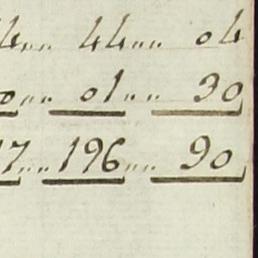 4 „ 44 „ 04
0 „ 01 „ 30
17 „ 196 „ 90